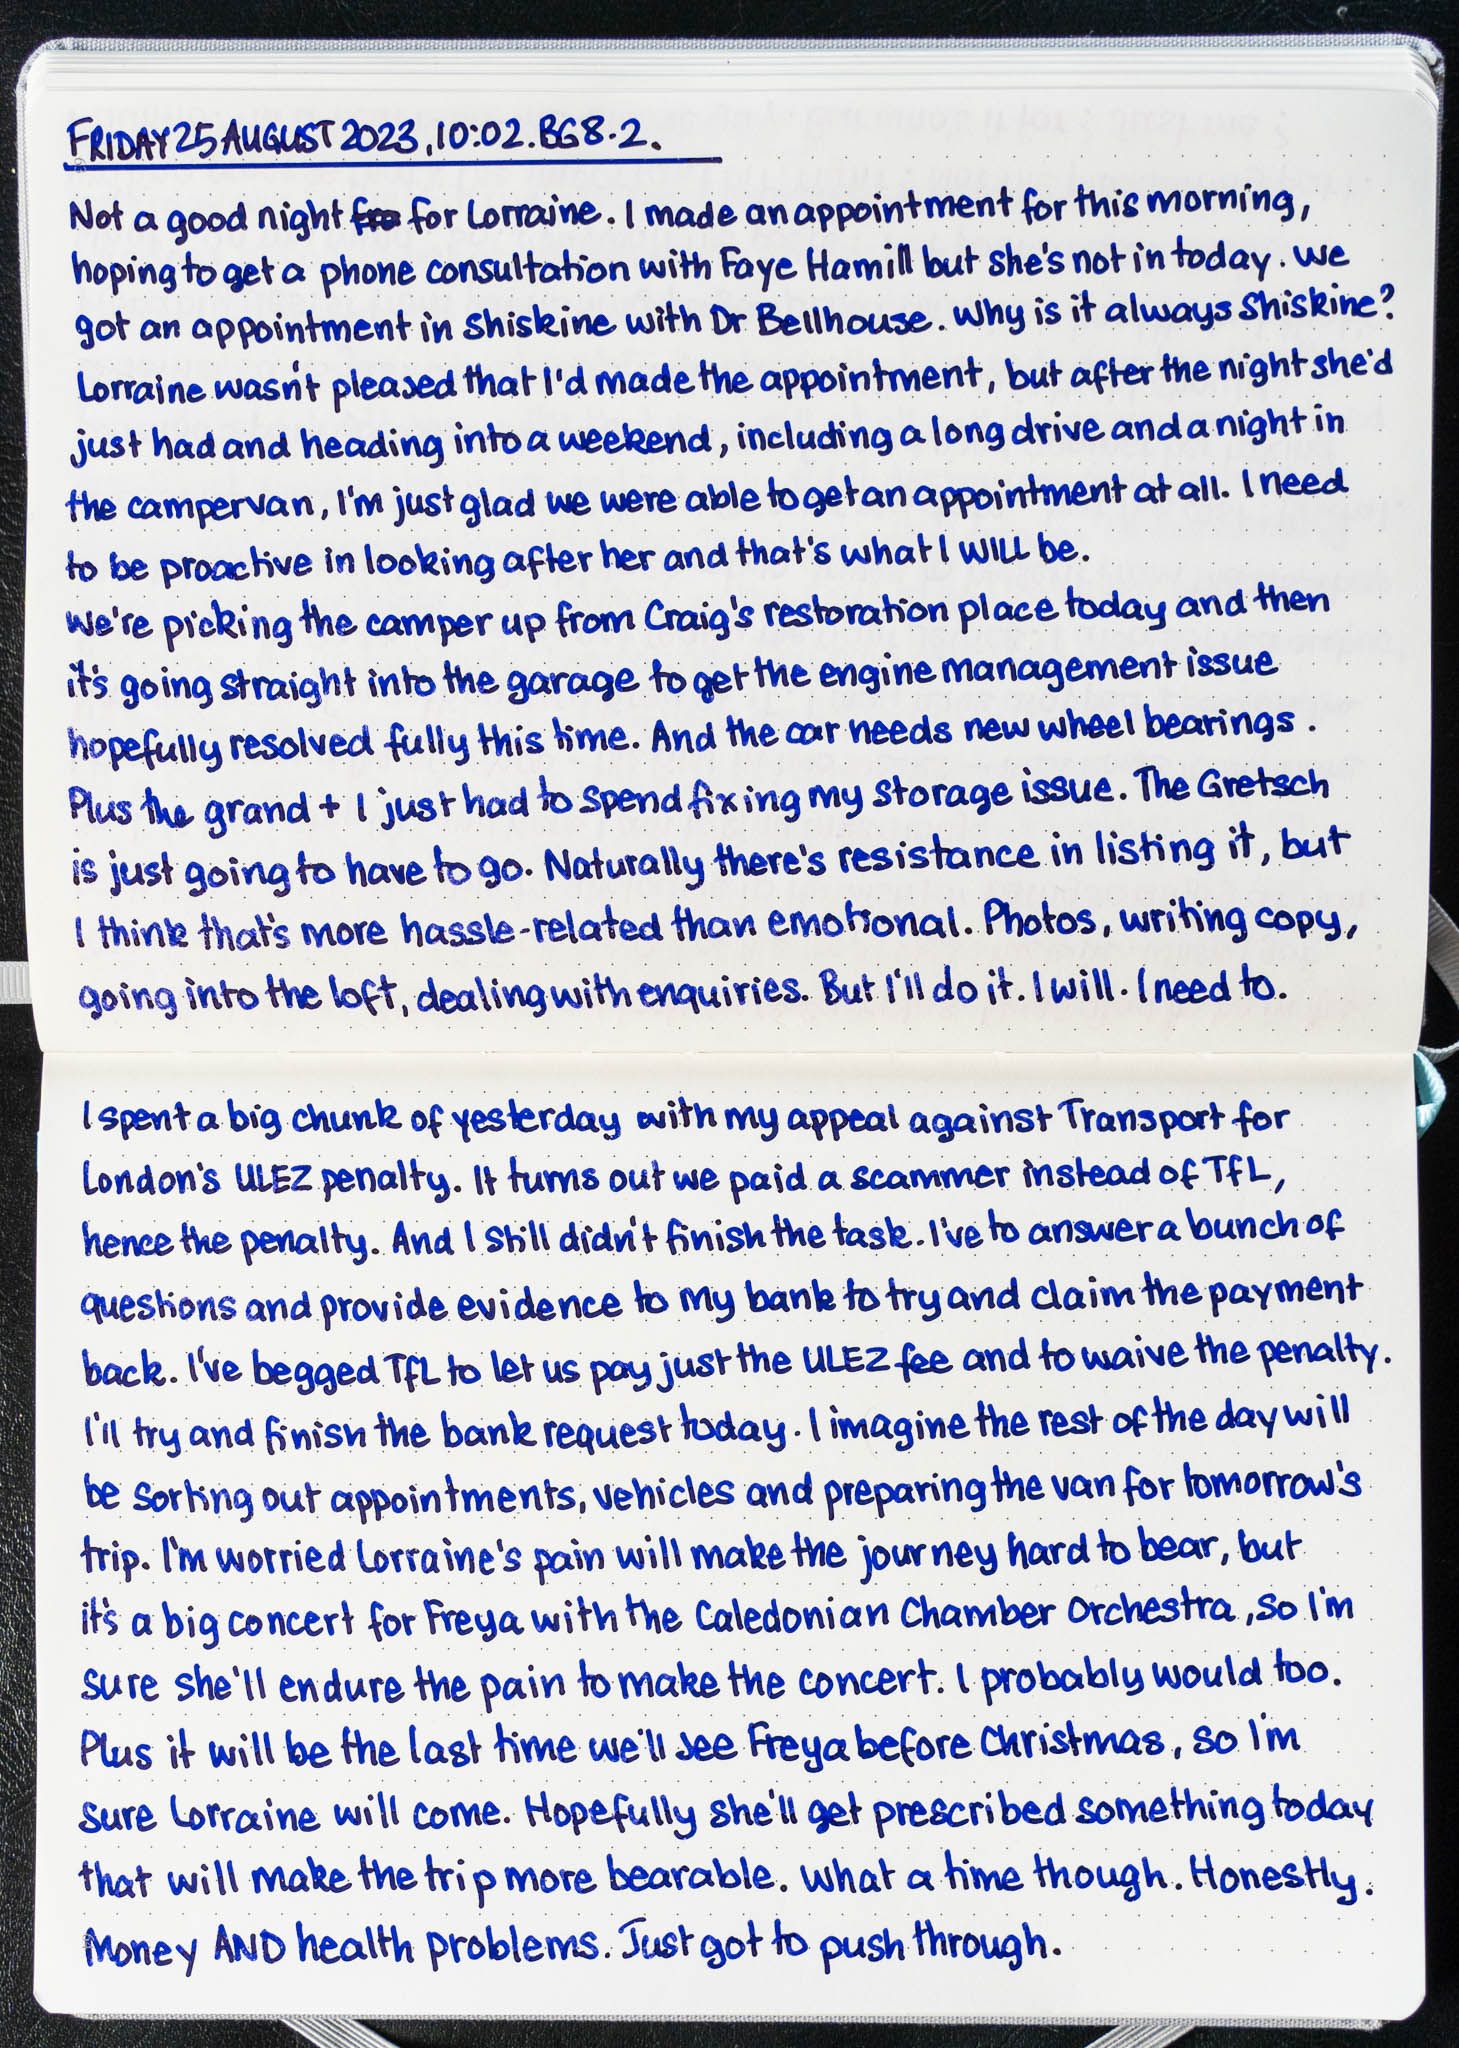 FRIDAY 25 AUGUST 2023, 10:02. BG 8.2.
Not a good night for Lorraine. I made an appointment for this morning,
hoping to get a phone consultation with Faye Hamill but she's not in today. We
got an appointment in Shiskine with Dr Bellhouse. Why is it always Shiskine?
Lorraine wasn't pleased that I'd made the appointment, but after the night she'd
just had and heading into a weekend, including a long drive and a night in
the campervan, I'm just glad we were able to get an appointment at all. I need
to be proactive in looking after her and that's what I WILL be.
We're picking the camper up from Craig's restoration place today and then
it's going straight into the garage to get the engine management issue
hopefully resolved fully this time. And the car needs new wheel bearings.
Plus the grand + I just had to spend fixing my storage issue. The Gretsch
is just going to have to go. Naturally there's resistance in listing it, but
I think that's more hassle-related than emotional. Photos, writing copy,
going into the loft, dealing with enquiries. But I'll do it. I will. I need to.
I spent a big chunk of yesterday with my appeal against Transport for
London's ULEZ penalty. It turns out we paid a scammer instead of TfL,
hence the penalty. And I still didn't finish the task. I've to answer a bunch of
questions and provide evidence to my bank to try and claim the payment
back. I've begged TfL to let us pay just the ULEZ fee and to waive the penalty.
I'll try and finish the bank request today. I imagine the rest of the day will
be sorting out appointments, vehicles and preparing the van for tomorrow's
trip. I'm worried Lorraine's pain will make the journey hard to bear, but
it's a big concert for Freya with the Caledonian Chamber Orchestra, so I'm
sure she'll endure the pain to make the concert. I probably would too.
Plus it will be the last time we'll see Freya before Christmas, so I'm
sure Lorraine will come. Hopefully she'll get prescribed something today
that will make the trip more bearable. What a time though. Honestly.
Money AND health problems. Just got to push through.